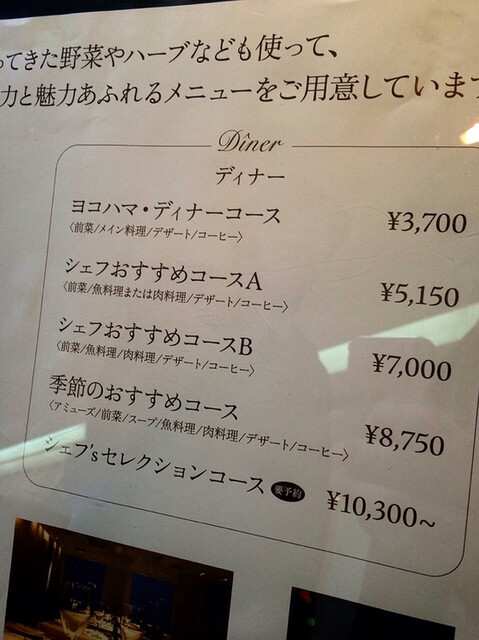 ってきた野菜やハーブなども使って、
力と魅力あふれるメニューをご用意しています
Dîner
ディナー
ヨコハマ・ディナーコース ¥3,700
〈前菜/メイン料理/デザート/コーヒー〉
シェフおすすめコースA ¥5,150
〈前菜/魚料理または肉料理/デザート/コーヒー〉
シェフおすすめコースB ¥7,000
〈前菜/魚料理/肉料理/デザート/コーヒー〉
季節のおすすめコース ¥8,750
〈アミューズ/前菜/スープ/魚料理/肉料理/デザート/コーヒー〉
シェフ'sセレクションコース 要予約 ¥10,300~